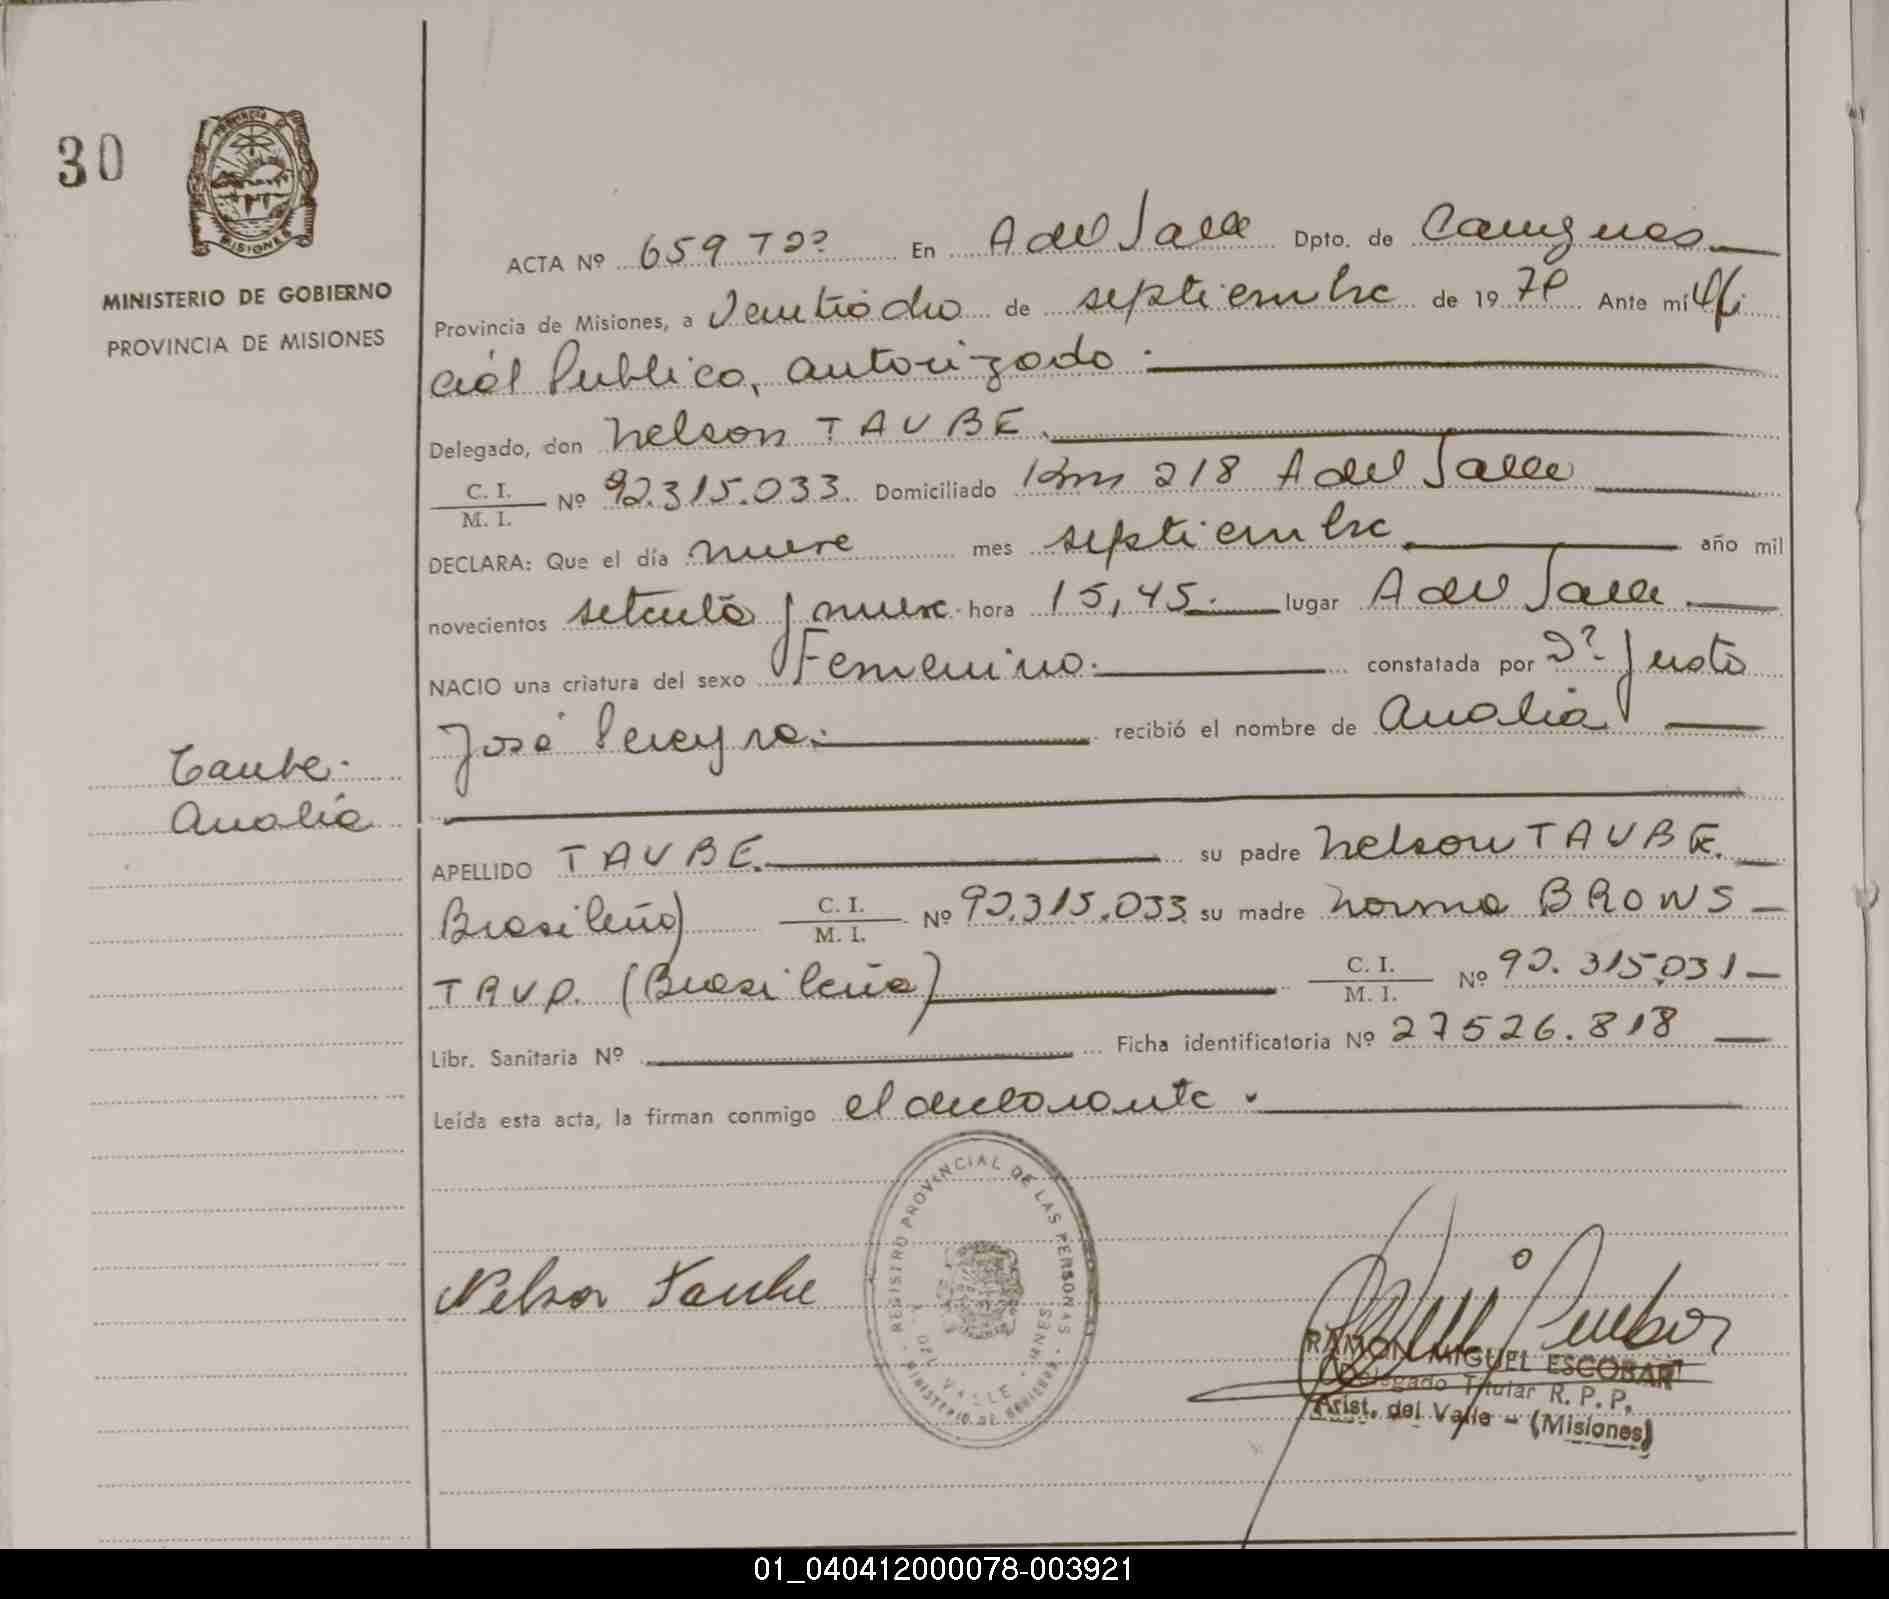 30
PROVINCIA DE
MISIONES
MINISTERIO DE GOBIERNO
PROVINCIA DE MISIONES
ACTA Nº 659 Tº 2º En A del Valle Dpto. de Cainguas
Provincia de Misiones, a Veintiocho de septiembre de 1979 Ante mí Ofi
cial Publico, autorizado.
Delegado, don Nelson TAUBE.
C. I. / M. I. Nº 92.315.033 Domiciliado Km 218 A del Valle
DECLARA: Que el día nueve mes septiembre año mil
novecientos setenta y nueve hora 15,45. lugar A del Valle
NACIO una criatura del sexo Femenino. constatada por Dº Justo
José Pereyra. recibió el nombre de Analia
Taube.
Analia
APELLIDO TAUBE. su padre Nelson TAUBE.
Brasileño) C. I. / M. I. Nº 92.315.033 su madre Norma BRONS
(Brasileña) C. I. / M. I. Nº 92.315.031
Libr. Sanitaria Nº Ficha identificatoria Nº 27526.818
Leída esta acta, la firman conmigo el declarante.
REGISTRO PROVINCIAL DE LAS PERSONAS
DEL VALLE - MNES.
MINISTERIO DE GOBIERNO
Nelson Taube
RAMON MIGUEL ESCOBAR
Delegado Titular R. P. P.
Arist. del Valle - (Misiones)
01_040412000078-003921